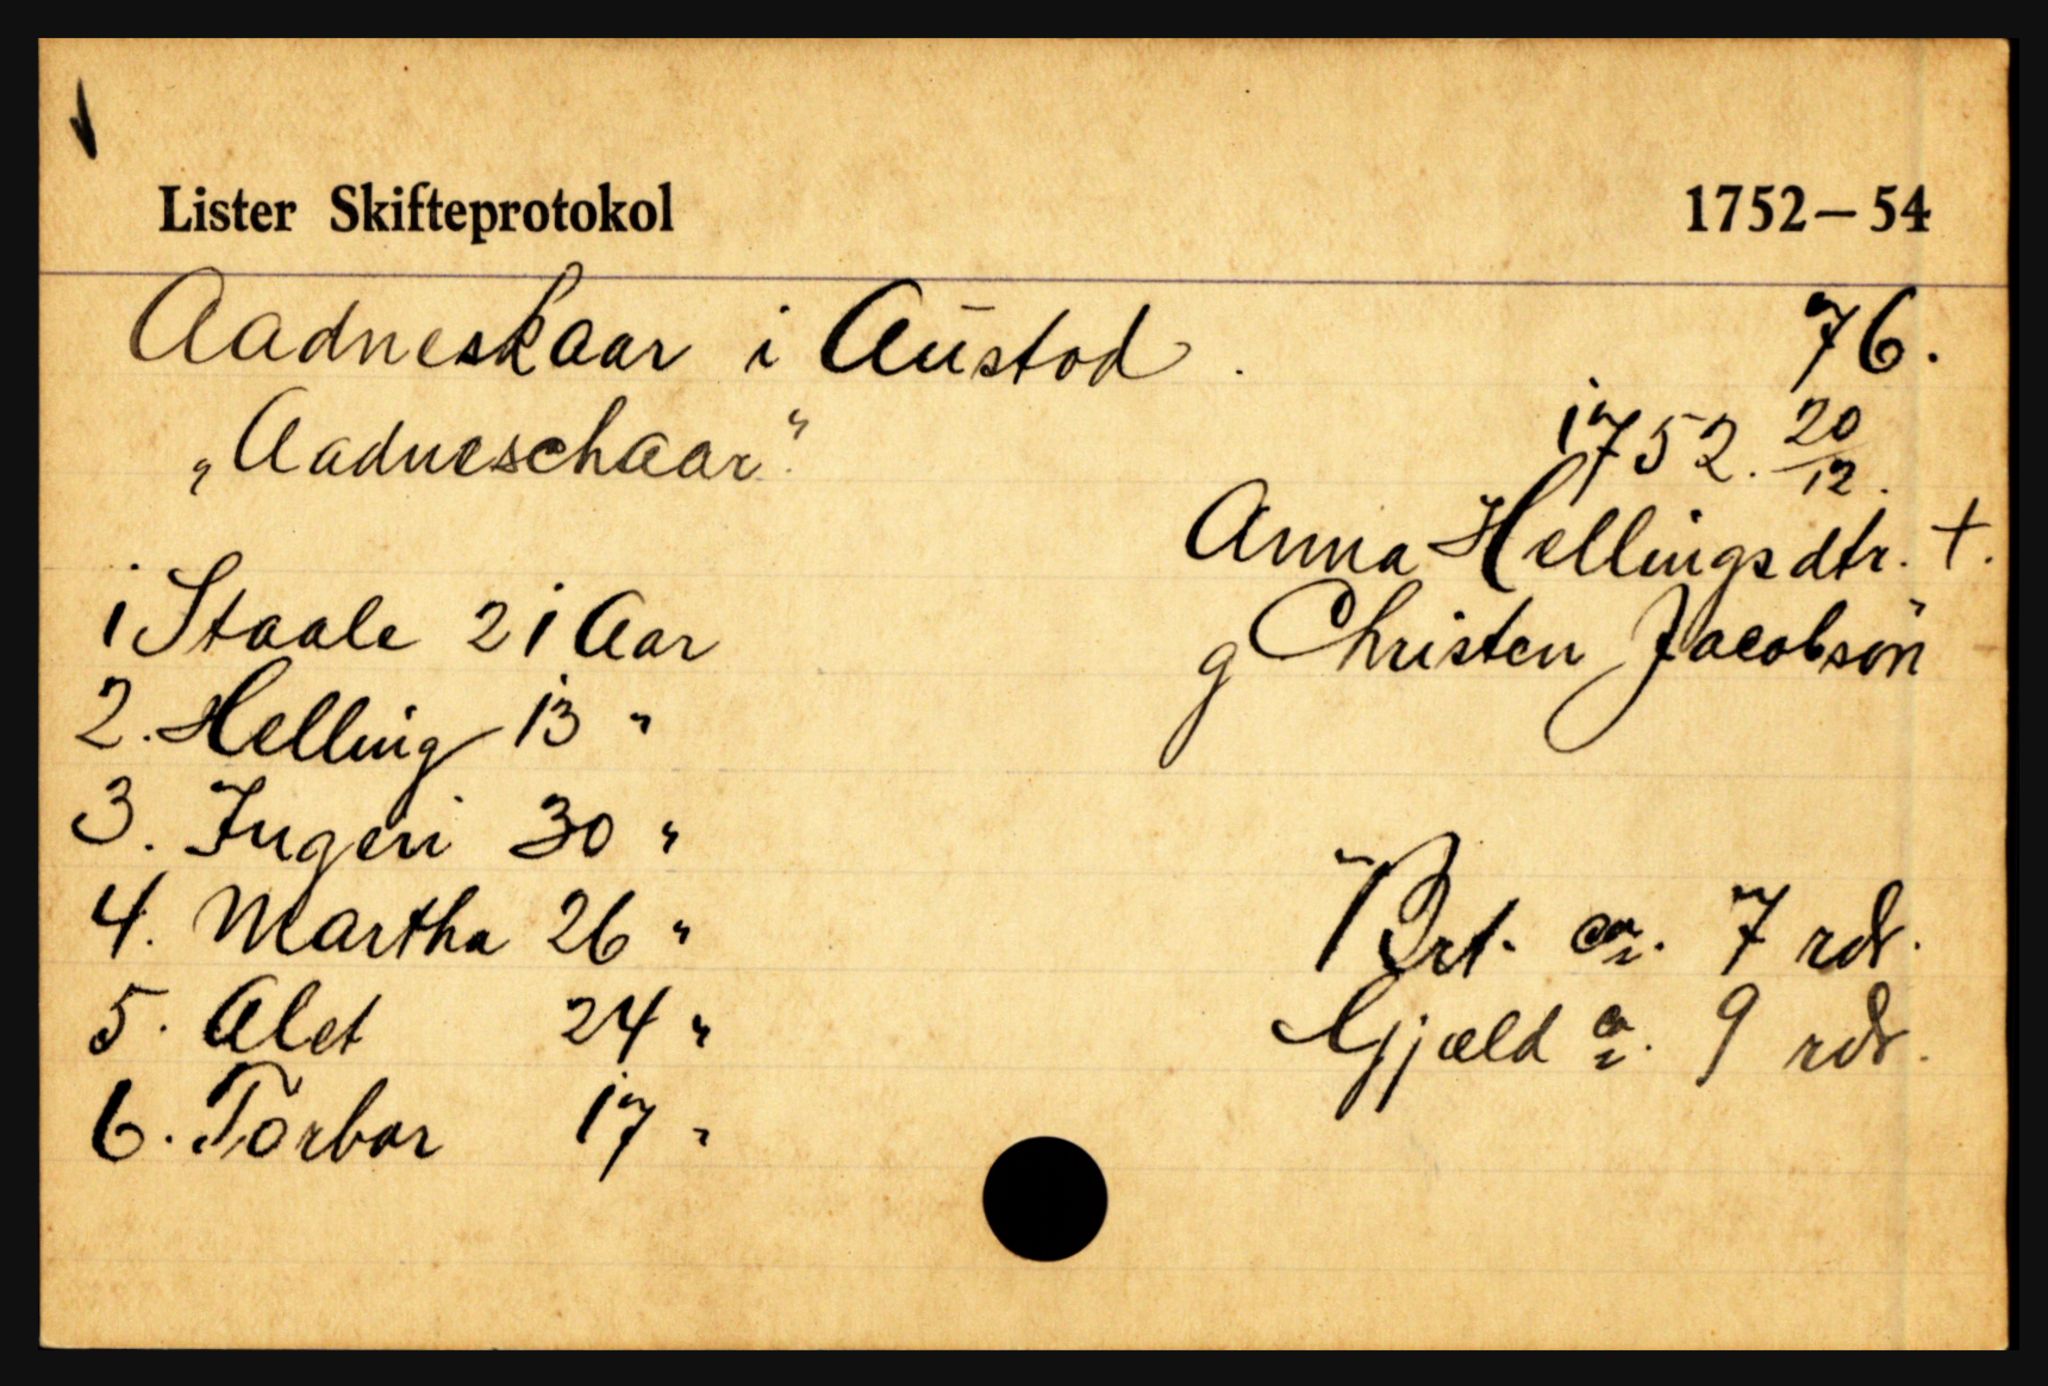 Lister Skifteprotokol 1752–54
Aadneskaar i Austod. 76.
„Aadneschaar". 1752. 20/12.
Anna Hellingsdtr. +.
g Christen Jacobsøn
1 Staale 21 Aar
2. Helling 13 "
3. Ingeri 30 "
4. Martha 26 "
5. Alet 24 "
6. Torbor 17 "
Brt. ca. 7 rdr.
Gjæld ca. 9 rdr.